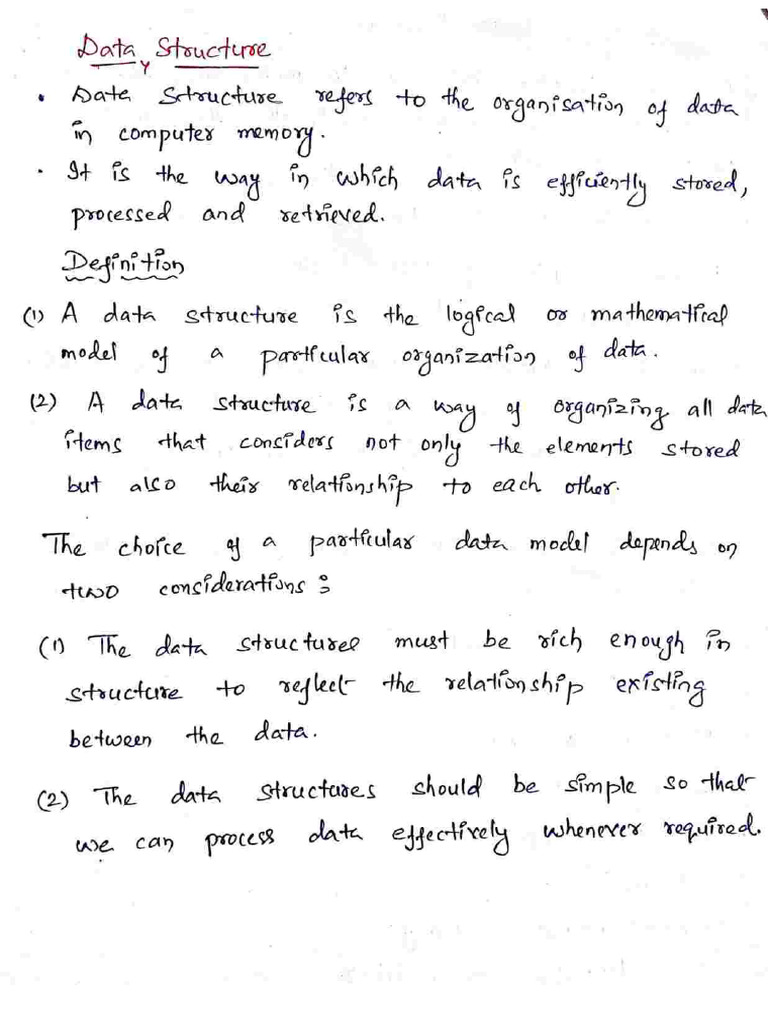 Data Structure
• Data Structure refers to the organisation of data
in computer memory.
• It is the way in which data is efficiently stored,
processed and retrieved.
Definition
(1) A data structure is the logical or mathematical
model of a particular organization of data.
(2) A data structure is a way of organizing all data
items that considers not only the elements stored
but also their relationship to each other.
The choice of a particular data model depends on
two considerations :
(1) The data structures must be rich enough in
structure to reflect the relationship existing
between the data.
(2) The data structures should be simple so that
we can process data effectively whenever required.